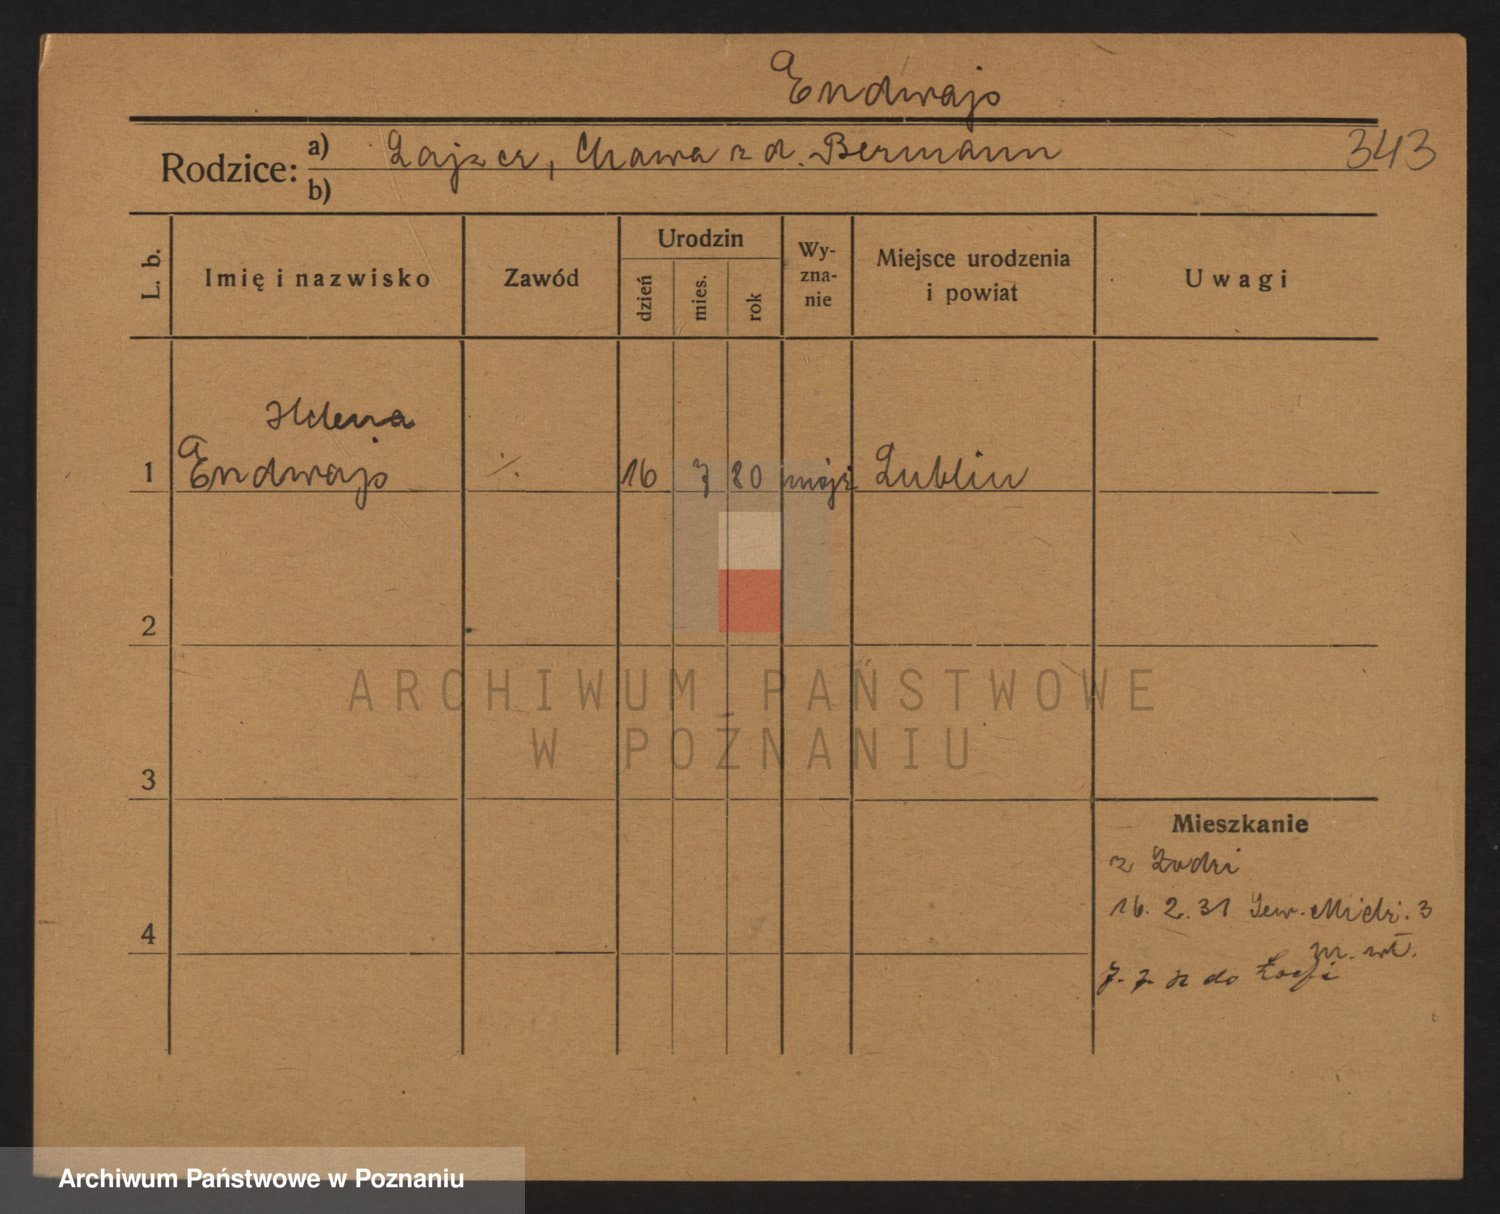 Endwajs
Rodzice: a) Lajzer, Chawa z d. Bermann 343
b)
L. b. Imię i nazwisko Zawód Urodzin dzień mies. rok Wy-zna-nie Miejsce urodzenia i powiat Uwagi
Helena
1 Endwajs ./. 16 7 80 mojż Lublin
2
ARCHIWUM PAŃSTWOWE
W POZNANIU
3
Mieszkanie
z Łodzi
16. 2. 31 3
4
7. 7. do Łodzi
Archiwum Państwowe w Poznaniu